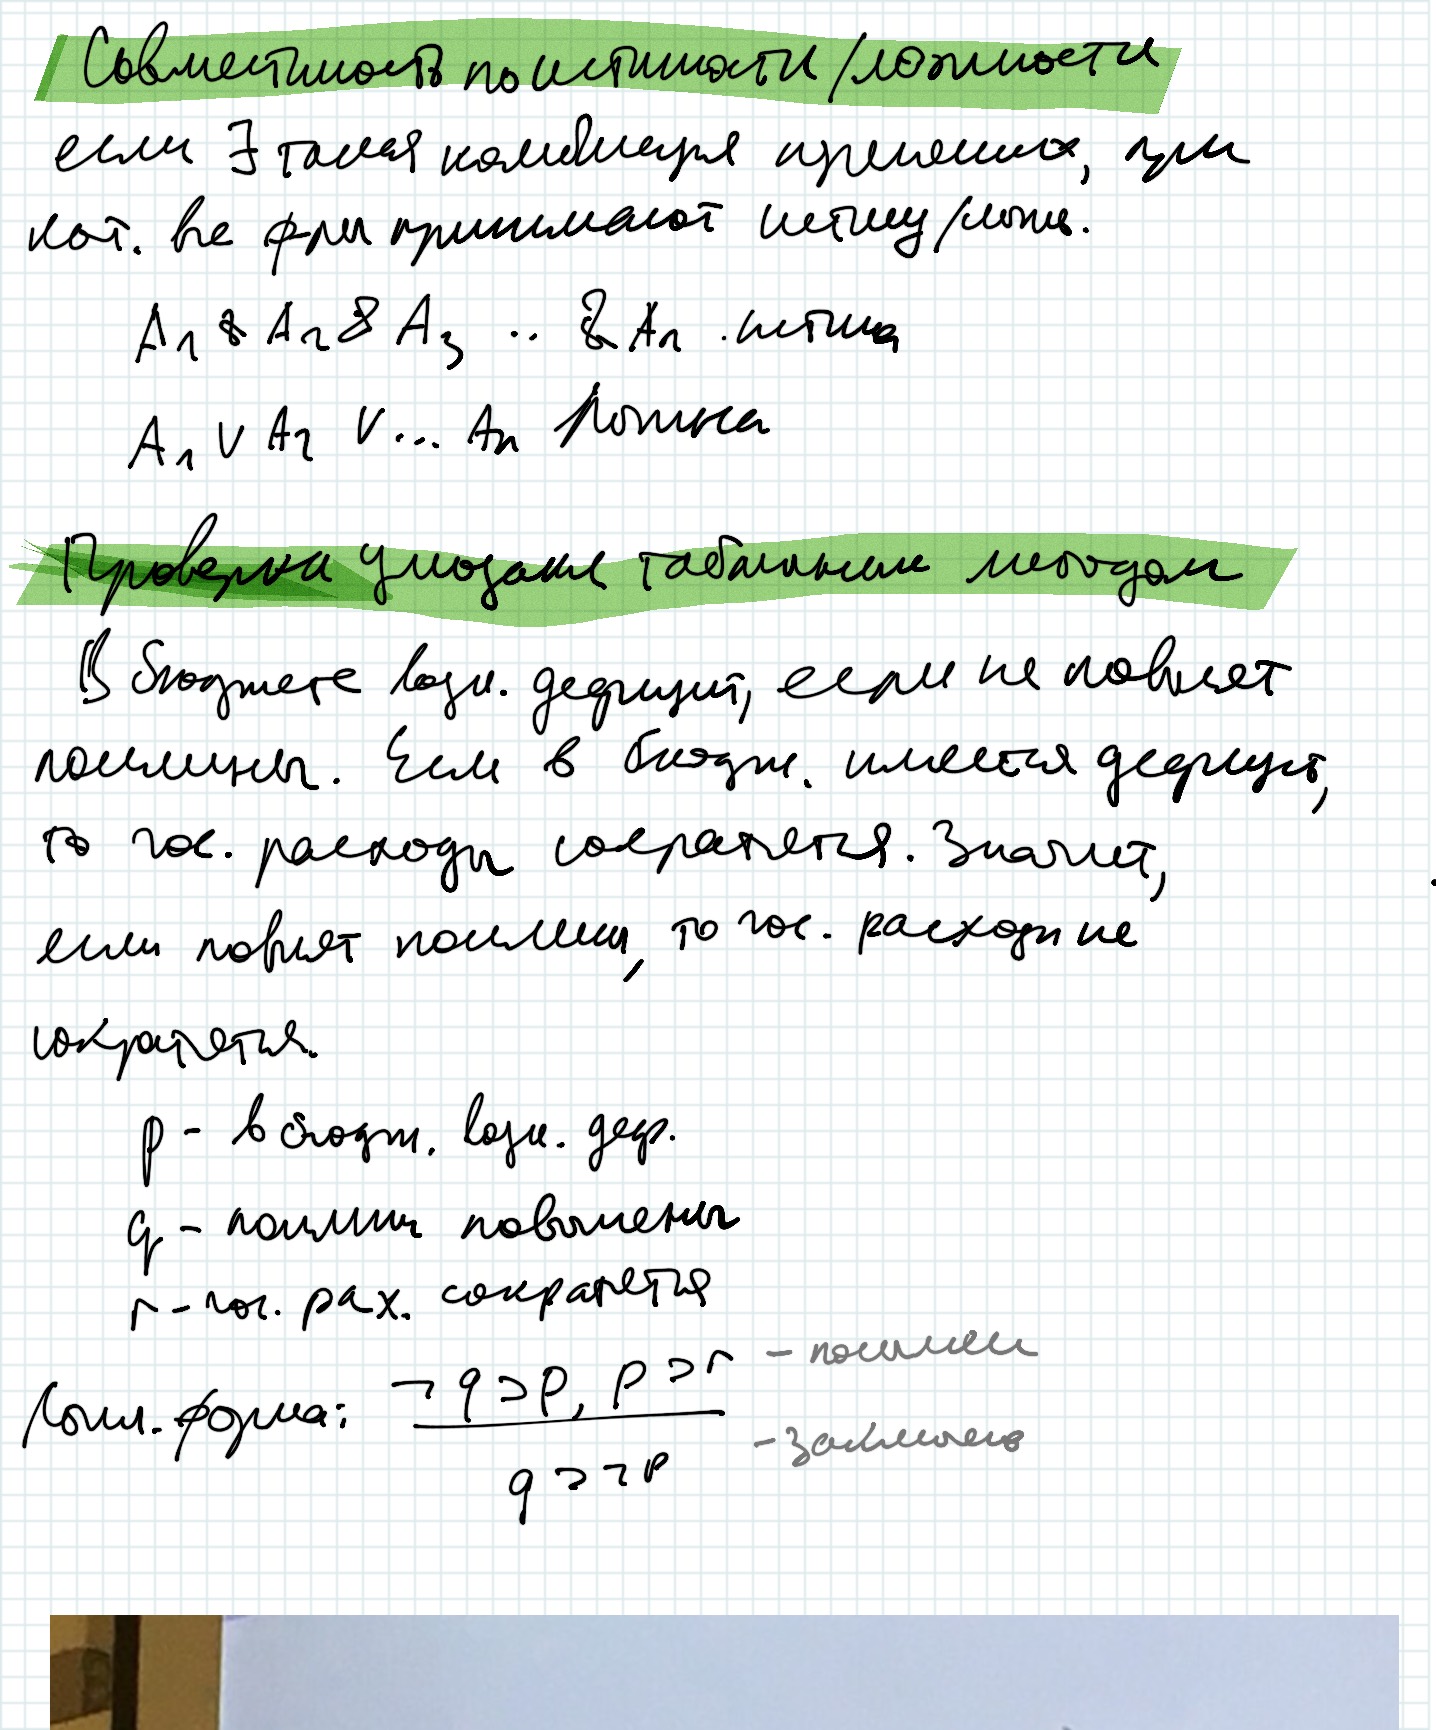 Совместимость по истинности/ложности
если ∃ такая комбинация переменных, при
кот. все ф-лы принимают истину/ложь.
A₁ & A₂ & A₃ .. & Aₙ . истина
A₁ ∨ A₂ ∨ ... Aₙ Ложна
Проверка умозакл табличным методом
В бюджете возн. дефицит, если не повысят
пошлины. Если в бюдж. имеется дефицит,
то гос. расходы сократятся. Значит,
если повысят пошлины, то гос. расходы не
сократятся.
p - в бюдж. возн. деф.
q - пошлины повышены
r - гос. рах. сократятся
Лог. форма: ¬q ⊃ p, p ⊃ r - посылки
q ⊃ ¬p - заключение